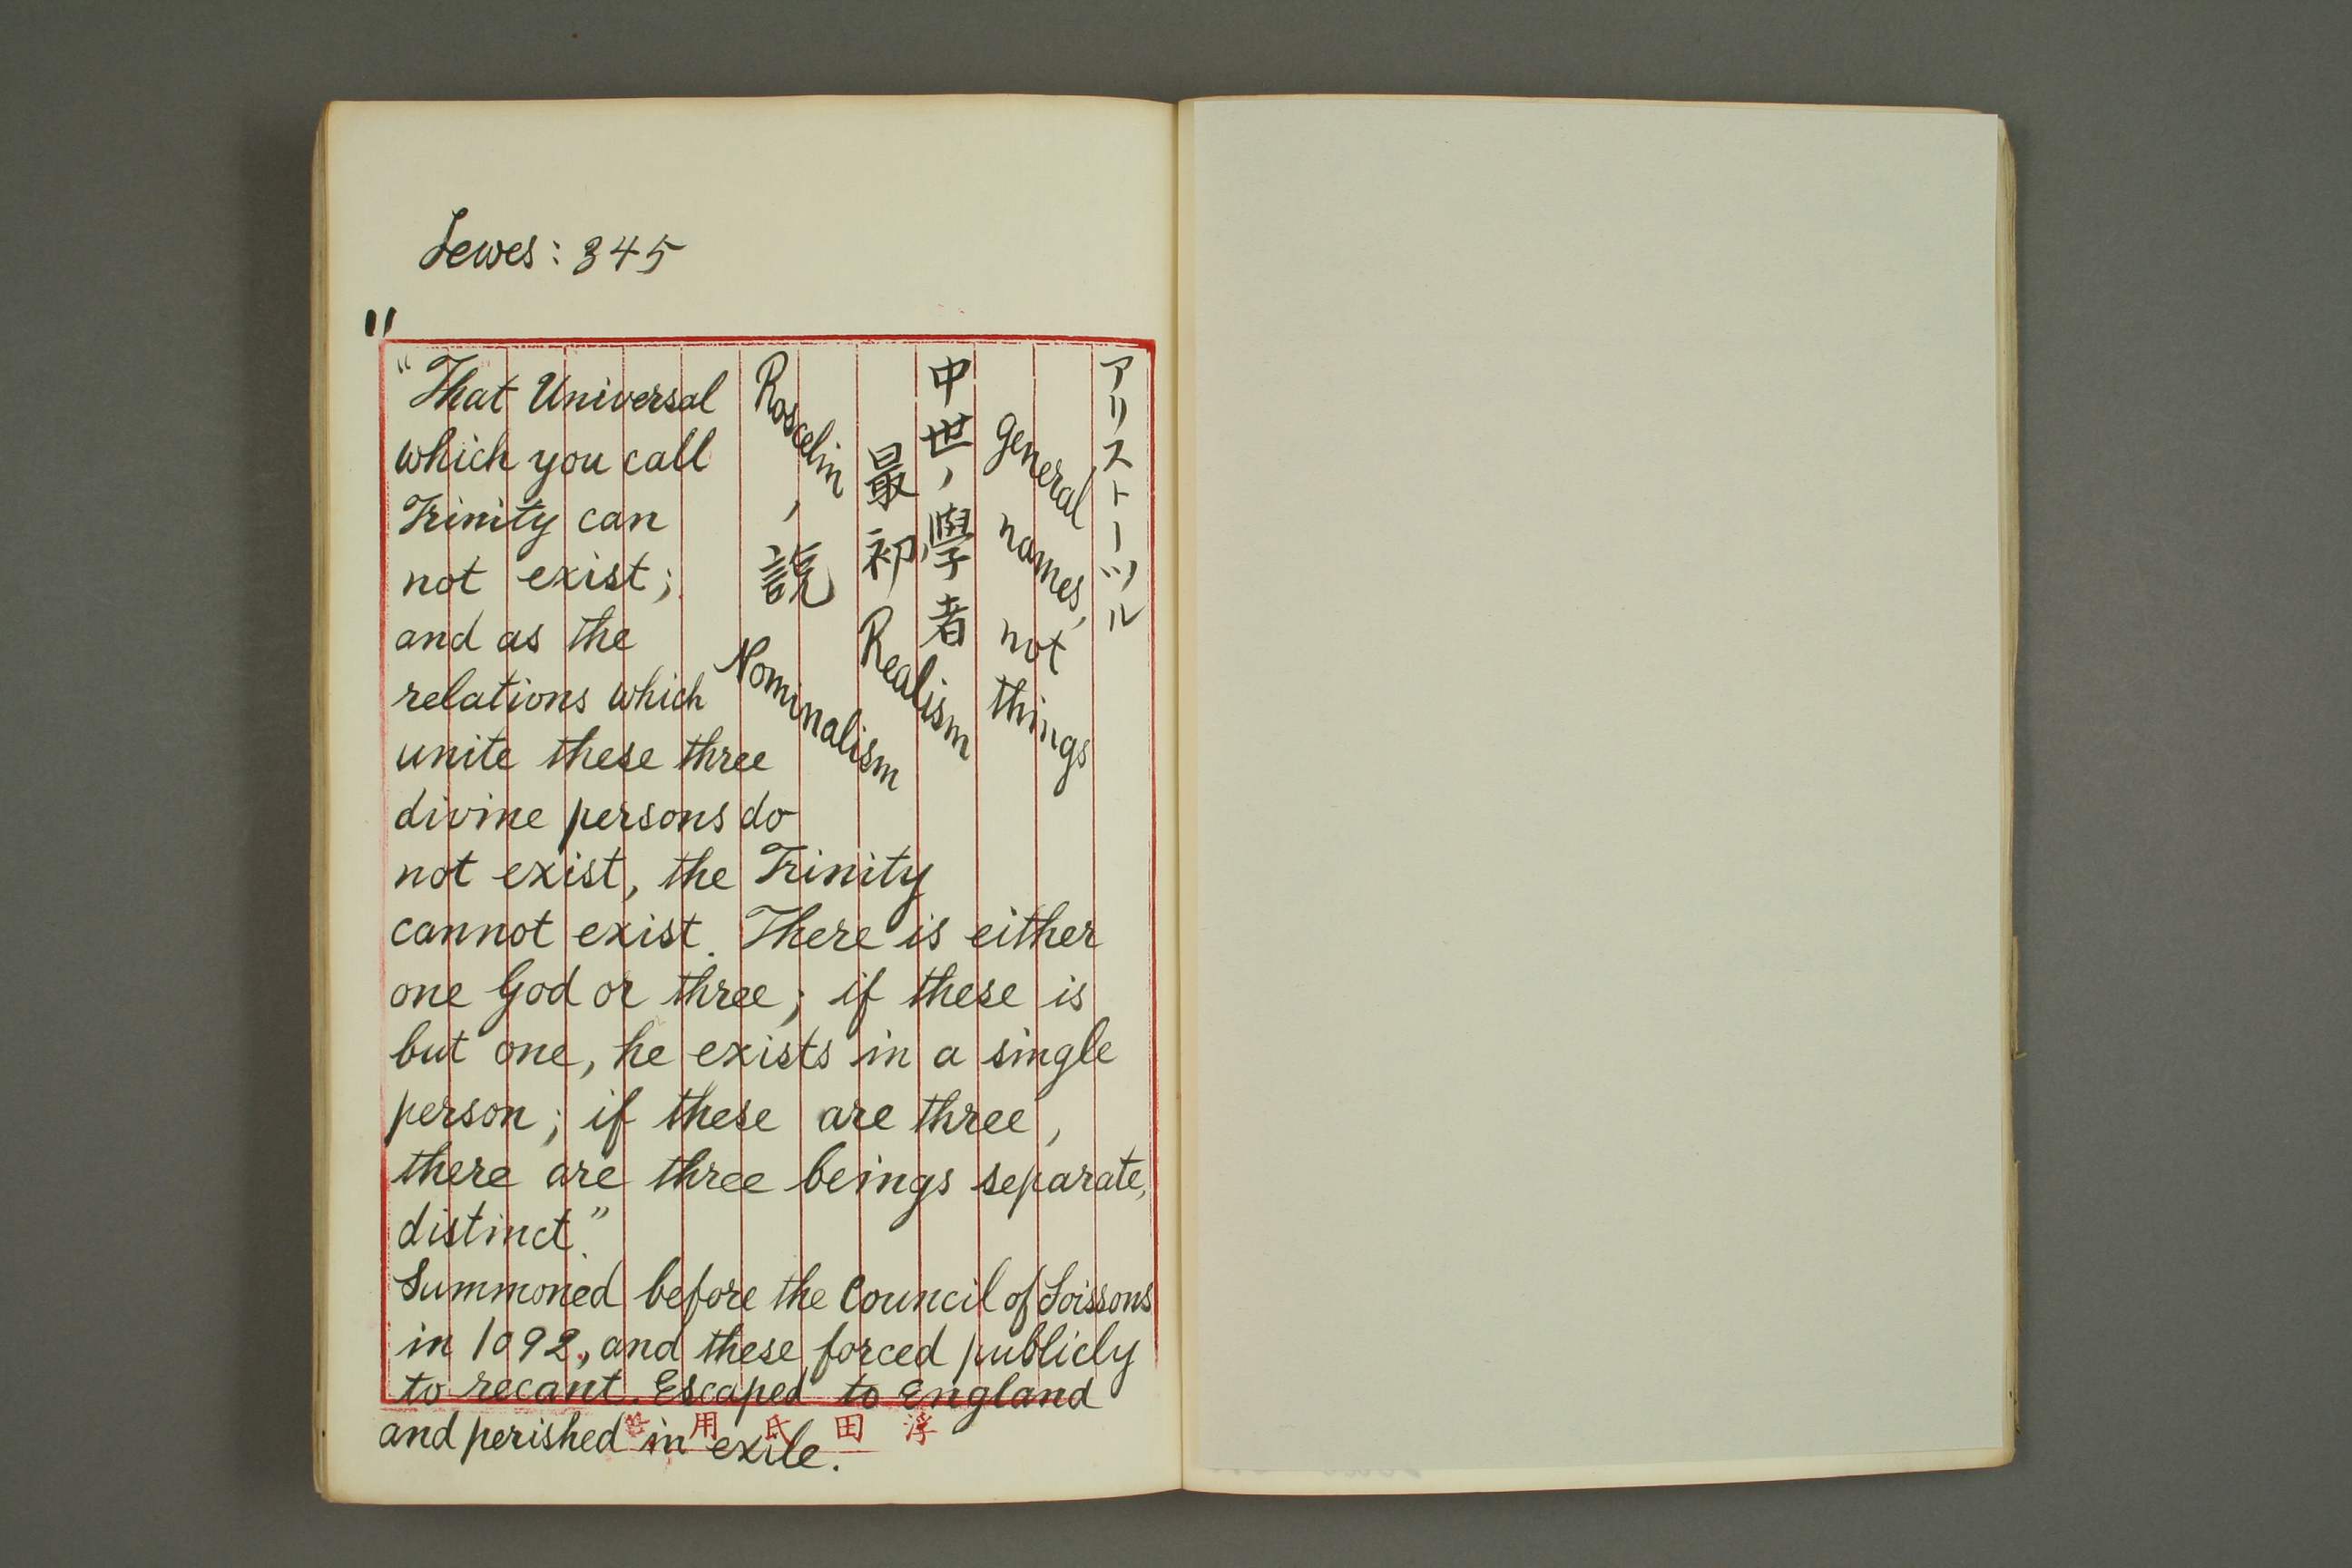 Lewes: 345
"
アリストーツル
general names, not things
中世ノ學者
最初ノ Realism
Roscelin ノ説
Nominalism
"That Universal
which you call
Trinity can
not exist;
and as the
relations which
unite these three
divine persons do
not exist, the Trinity
cannot exist. There is either
one God or three; if these is
but one, he exists in a single
person; if these are three,
there are three beings separate,
distinct."
Summoned before the Council of Soissons
in 1092, and these forced publicly
to recant. Escaped to England
and perished in exile.
浮田氏用